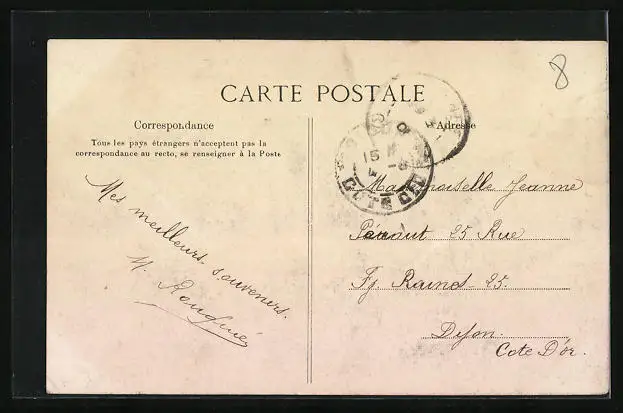 8
CARTE POSTALE
Correspondance
Tous les pays étrangers n'acceptent pas la
correspondance au recto, se renseigner à la Poste
Mes meilleurs souvenirs.
Adresse
Mademoiselle Jeanne
25 Rue
Fg. Raines 25.
Dijon.
Cote D'or.
15
COTE D'OR